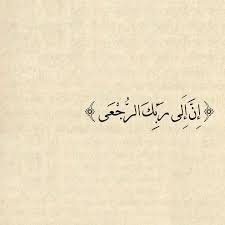 ﴿ إِنَّ إِلَى رَبِّكَ الرُّجْعَى ﴾